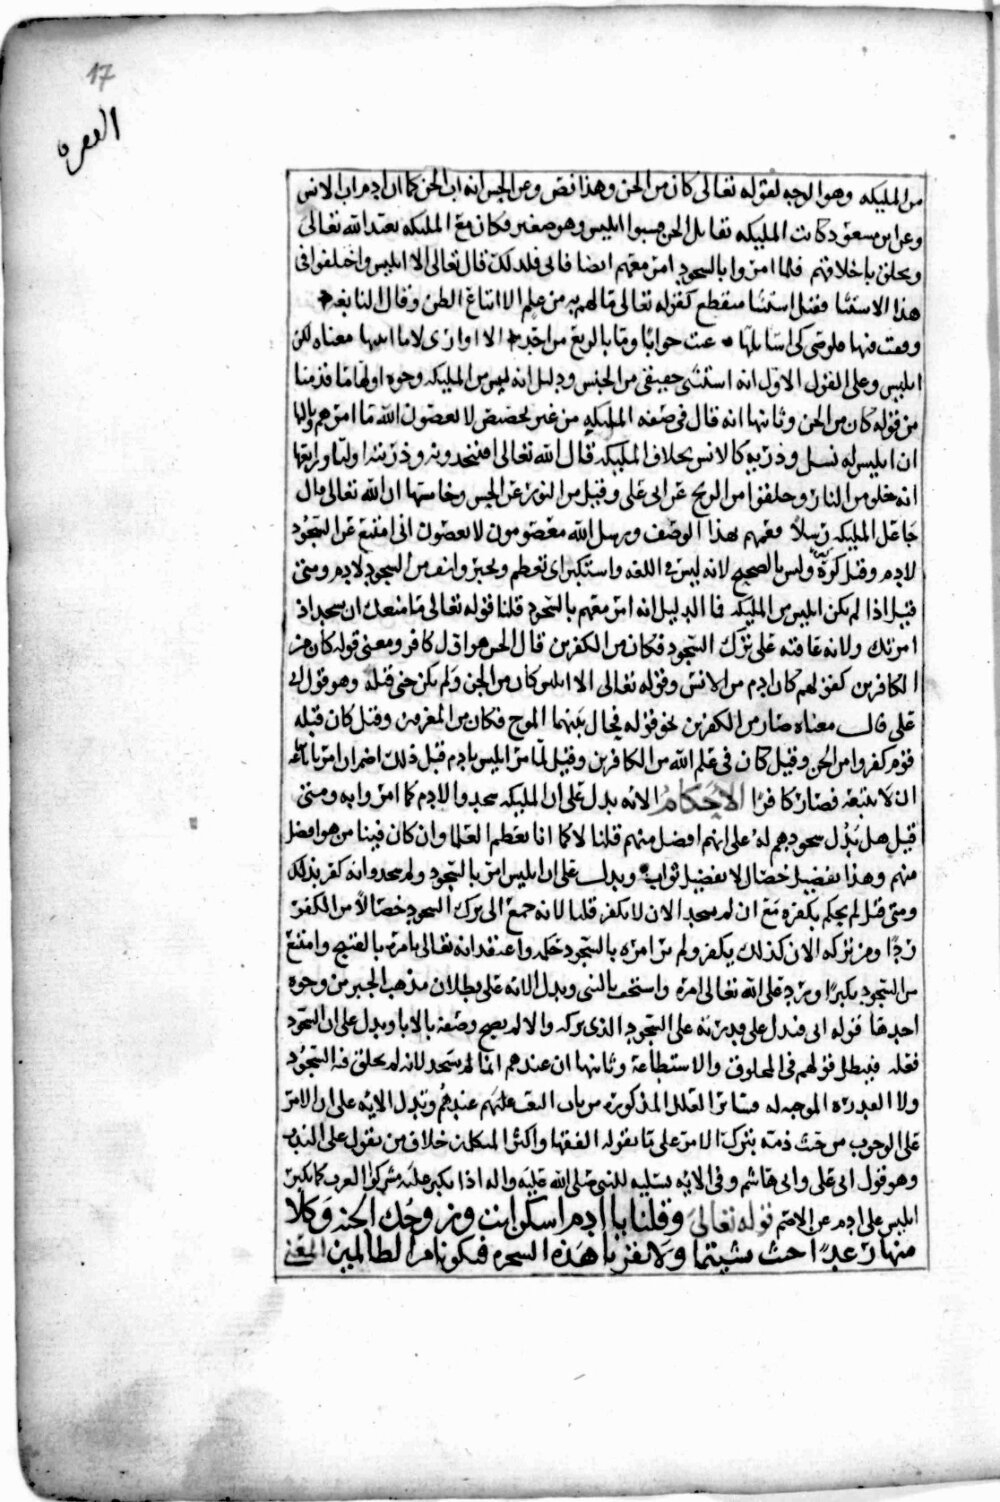 17
البقره
من المليكه وهو الوجه لقوله تعالى كان من الجن وهذا نص وعن الحسن انه اب الجن كما ان ادم اب الانس
وعن ابن مسعود كانت المليكه تقاتل الجن فسبوا ابليس وهو صغير وكان مع المليكه يعبد الله تعالى
ويخلق باخلاقهم فلما امروا بالسجود امر معهم ايضا فابى فلذلك قال تعالى الا ابليس واختلفوا في
هذا الاستثنا فقيل استثنا منقطع كقوله تعالى ما لهم به من علم الا اتباع الظن وقال النابغه
وقفت فيها طويلا كي اسايلها عيت جوابا وما بالربع من احد الا اواري لايا ما ابينها معناه لكن
ابليس وعلى القول الاول انه استثنى حقيقي من الجنس ودليل انه ليس من المليكه وجوه اولها ما قدمنا
من قوله كان من الجن وثانيها انه قال في صفه المليكه من غير تخصيص لا يعصون الله ما امرهم وثالثها
ان ابليس له نسل وذريه كالانس بخلاف المليكه قال الله تعالى افتتخذونه وذريته اوليا ورابعها
انه خلق من النار وخلقوا من الريح عن ابي علي وقيل من النور عن الحسن وخامسها ان الله تعالى قال
جاعل المليكه رسلا فعمهم بهذا الوصف ورسل الله معصومون لا يعصون ابى امتنع عن السجود
لادم وقيل كره وليس بالصحيح لانه ليس في اللغه واستكبر اى تعظم وتجبر وانف من السجود لادم ومتى
قيل اذا لم يكن ابليس من المليكه فما الدليل انه امر معهم بالسجود قلنا قوله تعالى ما منعك ان تسجد اذ
امرتك ولانه عاقبه على ترك السجود فكان من الكفرين قال الحسن هو اول كافر ومعنى قوله كان من
الكافرين كقولهم كان ادم من الانس وقوله تعالى الا ابليس كان من الجن ولم يكن جني قبله وهو قول ابي
علي قال معناه صار من الكفرين نحو قوله وحال بينهما الموج فكان من المغرقين وقيل كان قبله
قوم كفروا من الجن وقيل كان في علم الله من الكافرين وقيل لما مر ابليس بادم قبل ذلك اضمر ان امر باتباعه
ان لا يتبعه فصار كافرا الاحكام الايه يدل على ان المليكه سجدوا لادم كما امروا به ومتى
قيل هل يدل سجودهم له على انهم افضل منهم قلنا لا كما انا نعظم العلما وان كان فينا من هو افضل
منهم وهذا تفضيل خصال لا تفضيل ثواب ويدل على ان ابليس امر بالسجود ولم يسجد وانه كفر بذلك
ومتى قيل لم يحكم بكفره مع ان لم يسجد الان لا يكفر قلنا لانه جمع الى ترك السجود خصالا من الكفر
ردا ومن تركه الان كذلك يكفر ولم ير امره بالسجود حكمه واعتقد انه تعالى يامر بالقبيح وامتنع
من السجود تكبرا ورد على الله تعالى امره واستخف بالنبي ويدل الايه على بطلان مذهب الجبر من وجوه
احدها قوله ابى فيدل على قدرته على السجود الذي تركه والا لم يصح وصفه بالابا ويدل على ان السجود
فعله فيبطل قولهم في المخلوق والاستطاعة وثانيها ان عندهم انما لم يسجد لانه لم يخلق فيه السجود
ولا القدره الموجبه له وسائر العلل المذكوره من باب التعب عليهم عندهم ويدل الايه على ان الامر
على الوجوب من حيث ذمه بترك الامر على ما يقوله الفقها واكثر المتكلمين خلاف من يقول على الندب
وهو قول ابي علي وابي هاشم وفي الايه تسليه للنبي صلى الله عليه واله اذا تكبر عليه مشركوا العرب كما تكبر
ابليس على ادم عن الاصم قوله تعالى وقلنا يا ادم اسكن انت وزوجك الجنه وكلا
منها رغدا حيث شيتما ولا تقربا هذه الشجره فتكونا من الظالمين المعنى